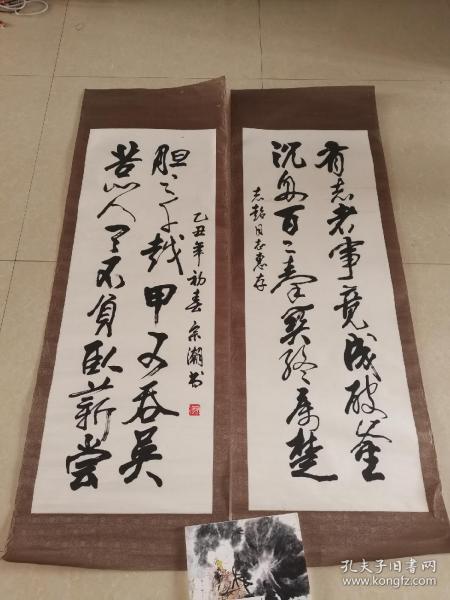 有志者事竟成破釜
沉舟百二秦关终属楚
志超同志惠存
苦心人天不负卧薪尝
胆三千越甲可吞吴
乙丑年初春 宗潮书
孔夫子旧书网
www.kongfz.com